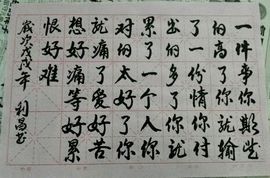 一件事你期望
的高了你就输
了一份情你付
出的多了你就
累了一个人你
对的太好了你
就痛了爱好苦
想好痛等好累
恨好难
岁次戊戌年 利昌书